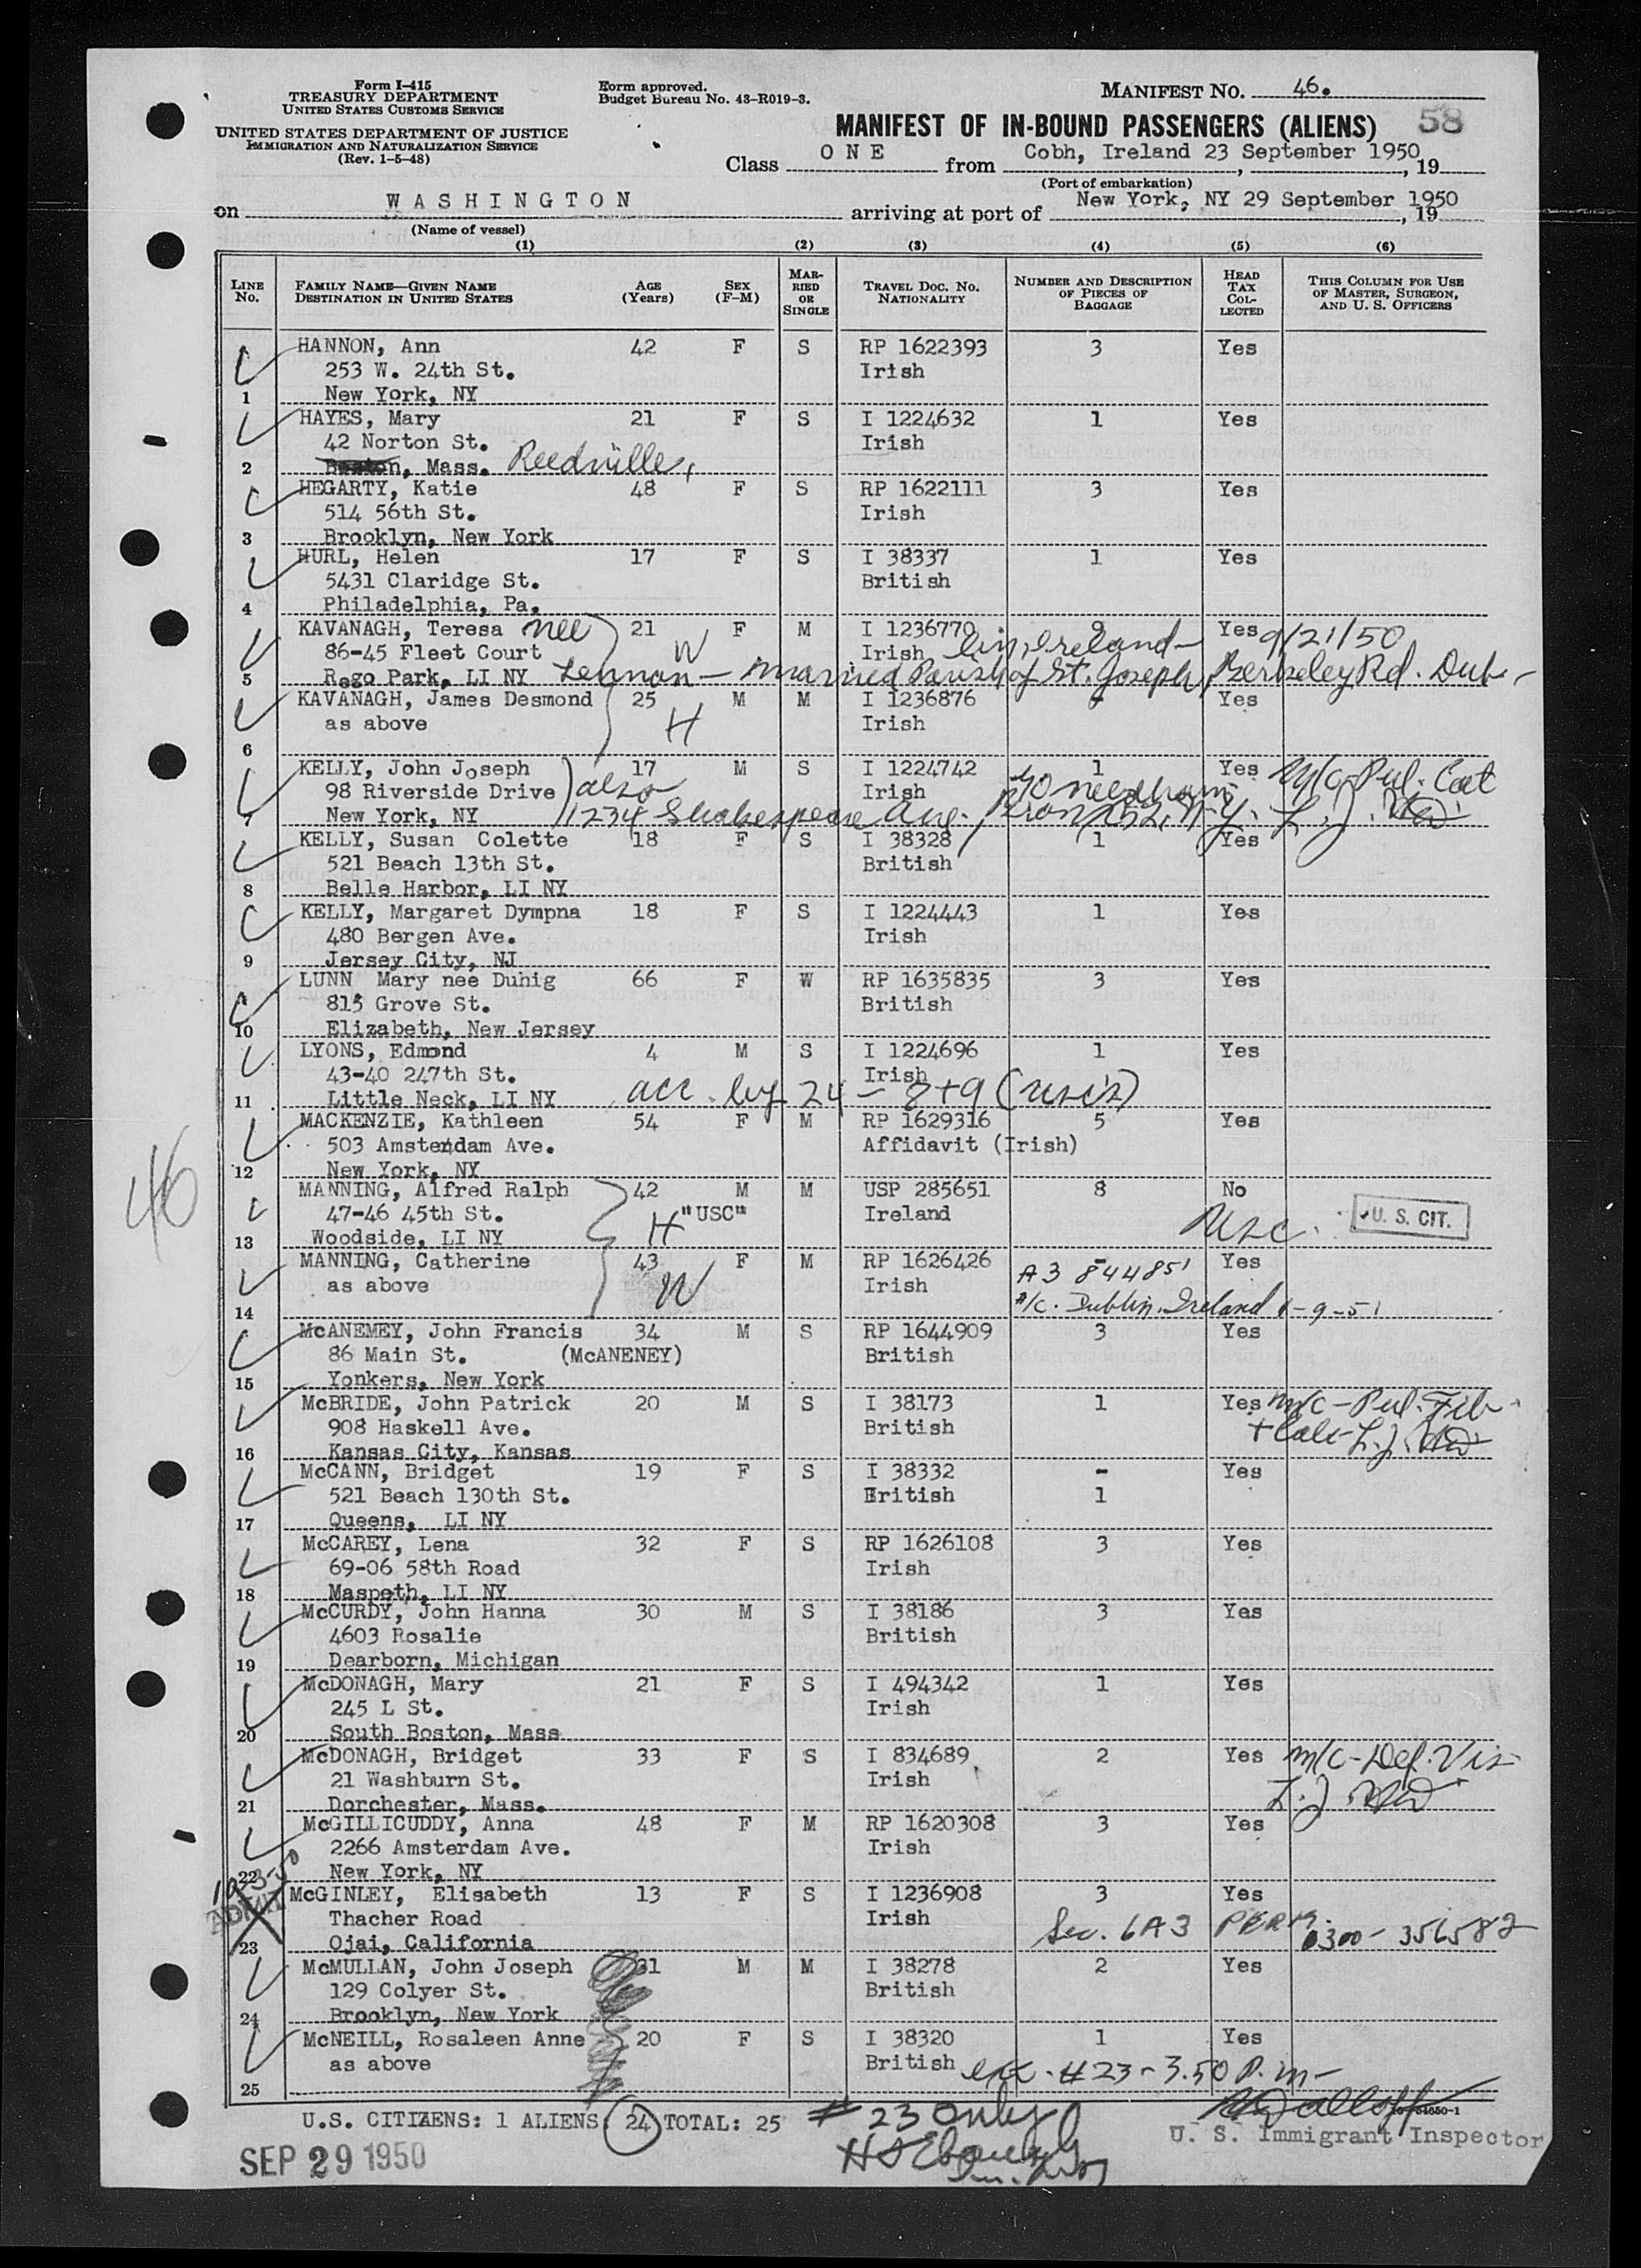 Form I-415
TREASURY DEPARTMENT
UNITED STATES CUSTOMS SERVICE
UNITED STATES DEPARTMENT OF JUSTICE
IMMIGRATION AND NATURALIZATION SERVICE
(Rev. 1-5-48)
Form approved.
Budget Bureau No. 43-R019-3.
MANIFEST NO. 46.
58
MANIFEST OF IN-BOUND PASSENGERS (ALIENS)
Class ONE from Cobh, Ireland 23 September 1950, 19
(Port of embarkation)
on WASHINGTON arriving at port of New York, NY 29 September 1950, 19
(Name of vessel)
(1) (2) (3) (4) (5) (6)
LINE No. FAMILY NAME—GIVEN NAME DESTINATION IN UNITED STATES AGE (Years) SEX (F-M) MARRIED OR SINGLE TRAVEL DOC. NO. NATIONALITY NUMBER AND DESCRIPTION OF PIECES OF BAGGAGE HEAD TAX COLLECTED THIS COLUMN FOR USE OF MASTER, SURGEON, AND U. S. OFFICERS
HANNON, Ann 42 F S RP 1622393 3 Yes
253 W. 24th St. Irish
1 New York, NY
HAYES, Mary 21 F S I 1224632 1 Yes
42 Norton St. Irish
2 Boston, Mass. Reedville,
HEGARTY, Katie 48 F S RP 1622111 3 Yes
514 56th St. Irish
3 Brooklyn, New York
HURL, Helen 17 F S I 38337 1 Yes
5431 Claridge St. British
4 Philadelphia, Pa.
KAVANAGH, Teresa nee 21 F M I 1236770 Yes 9/21/50
86-45 Fleet Court W Irish lin, Ireland-
5 Rego Park, LI NY Lennon - Married Parish of St. Joseph, Berkeley Rd. Dub-
KAVANAGH, James Desmond 25 M M I 1236876 - Yes
as above H Irish
6
KELLY, John Joseph 17 M S I 1224742 1 Yes M/c-Pul. Cat
98 Riverside Drive also Irish c/o Needham
7 New York, NY 1234 Shakespeare Ave., Bronx 52, N.Y. L. J.
KELLY, Susan Colette 18 F S I 38328 1 Yes
521 Beach 13th St. British
8 Belle Harbor, LI NY
KELLY, Margaret Dympna 18 F S I 1224443 1 Yes
480 Bergen Ave. Irish
9 Jersey City, NJ
LUNN Mary nee Duhig 66 F W RP 1635835 3 Yes
815 Grove St. British
10 Elizabeth, New Jersey
LYONS, Edmond 4 M S I 1224696 1 Yes
43-40 247th St. Irish
11 Little Neck, LI NY acc. by 24 - 8+9 (uscs)
MACKENZIE, Kathleen 54 F M RP 1629316 5 Yes
503 Amsterdam Ave. Affidavit (Irish)
12 New York, NY
46
MANNING, Alfred Ralph 42 M M USP 285651 8 No
47-46 45th St. H "USC" Ireland usc. U. S. CIT.
13 Woodside, LI NY
MANNING, Catherine 43 F M RP 1626426 - Yes
as above W Irish A3 844851
14 Dublin, Ireland 1-9-51
McANEMEY, John Francis 34 M S RP 1644909 3 Yes
86 Main St. (McANENEY) British
15 Yonkers, New York
McBRIDE, John Patrick 20 M S I 38173 1 Yes M/c-Pul. Fib-
908 Haskell Ave. British + Calc- L. J.
16 Kansas City, Kansas
McCANN, Bridget 19 F S I 38332 - Yes
521 Beach 130th St. British 1
17 Queens, LI NY
McCAREY, Lena 32 F S RP 1626108 3 Yes
69-06 58th Road Irish
18 Maspeth, LI NY
McCURDY, John Hanna 30 M S I 38186 3 Yes
4603 Rosalie British
19 Dearborn, Michigan
McDONAGH, Mary 21 F S I 494342 1 Yes
245 L St. Irish
20 South Boston, Mass
McDONAGH, Bridget 33 F S I 834689 2 Yes M/c-Def. Vis-
21 Washburn St. Irish L. J.
21 Dorchester, Mass.
McGILLICUDDY, Anna 48 F M RP 1620308 3 Yes
2266 Amsterdam Ave. Irish
22 New York, NY
10-3-50
ADMIT
McGINLEY, Elisabeth 13 F S I 1236908 3 Yes
Thacher Road Irish Sec. 6A3 PERM. 0300-356582
23 Ojai, California
McMULLAN, John Joseph 31 M M I 38278 2 Yes
129 Colyer St. British
24 Brooklyn, New York
McNEILL, Rosaleen Anne 20 F S I 38320 1 Yes
as above British exc. #23-3.50 P.m-
25
U.S. CITIZENS: 1 ALIENS: 24 TOTAL: 25 # 23 only
U. S. Immigrant Inspector
SEP 29 1950